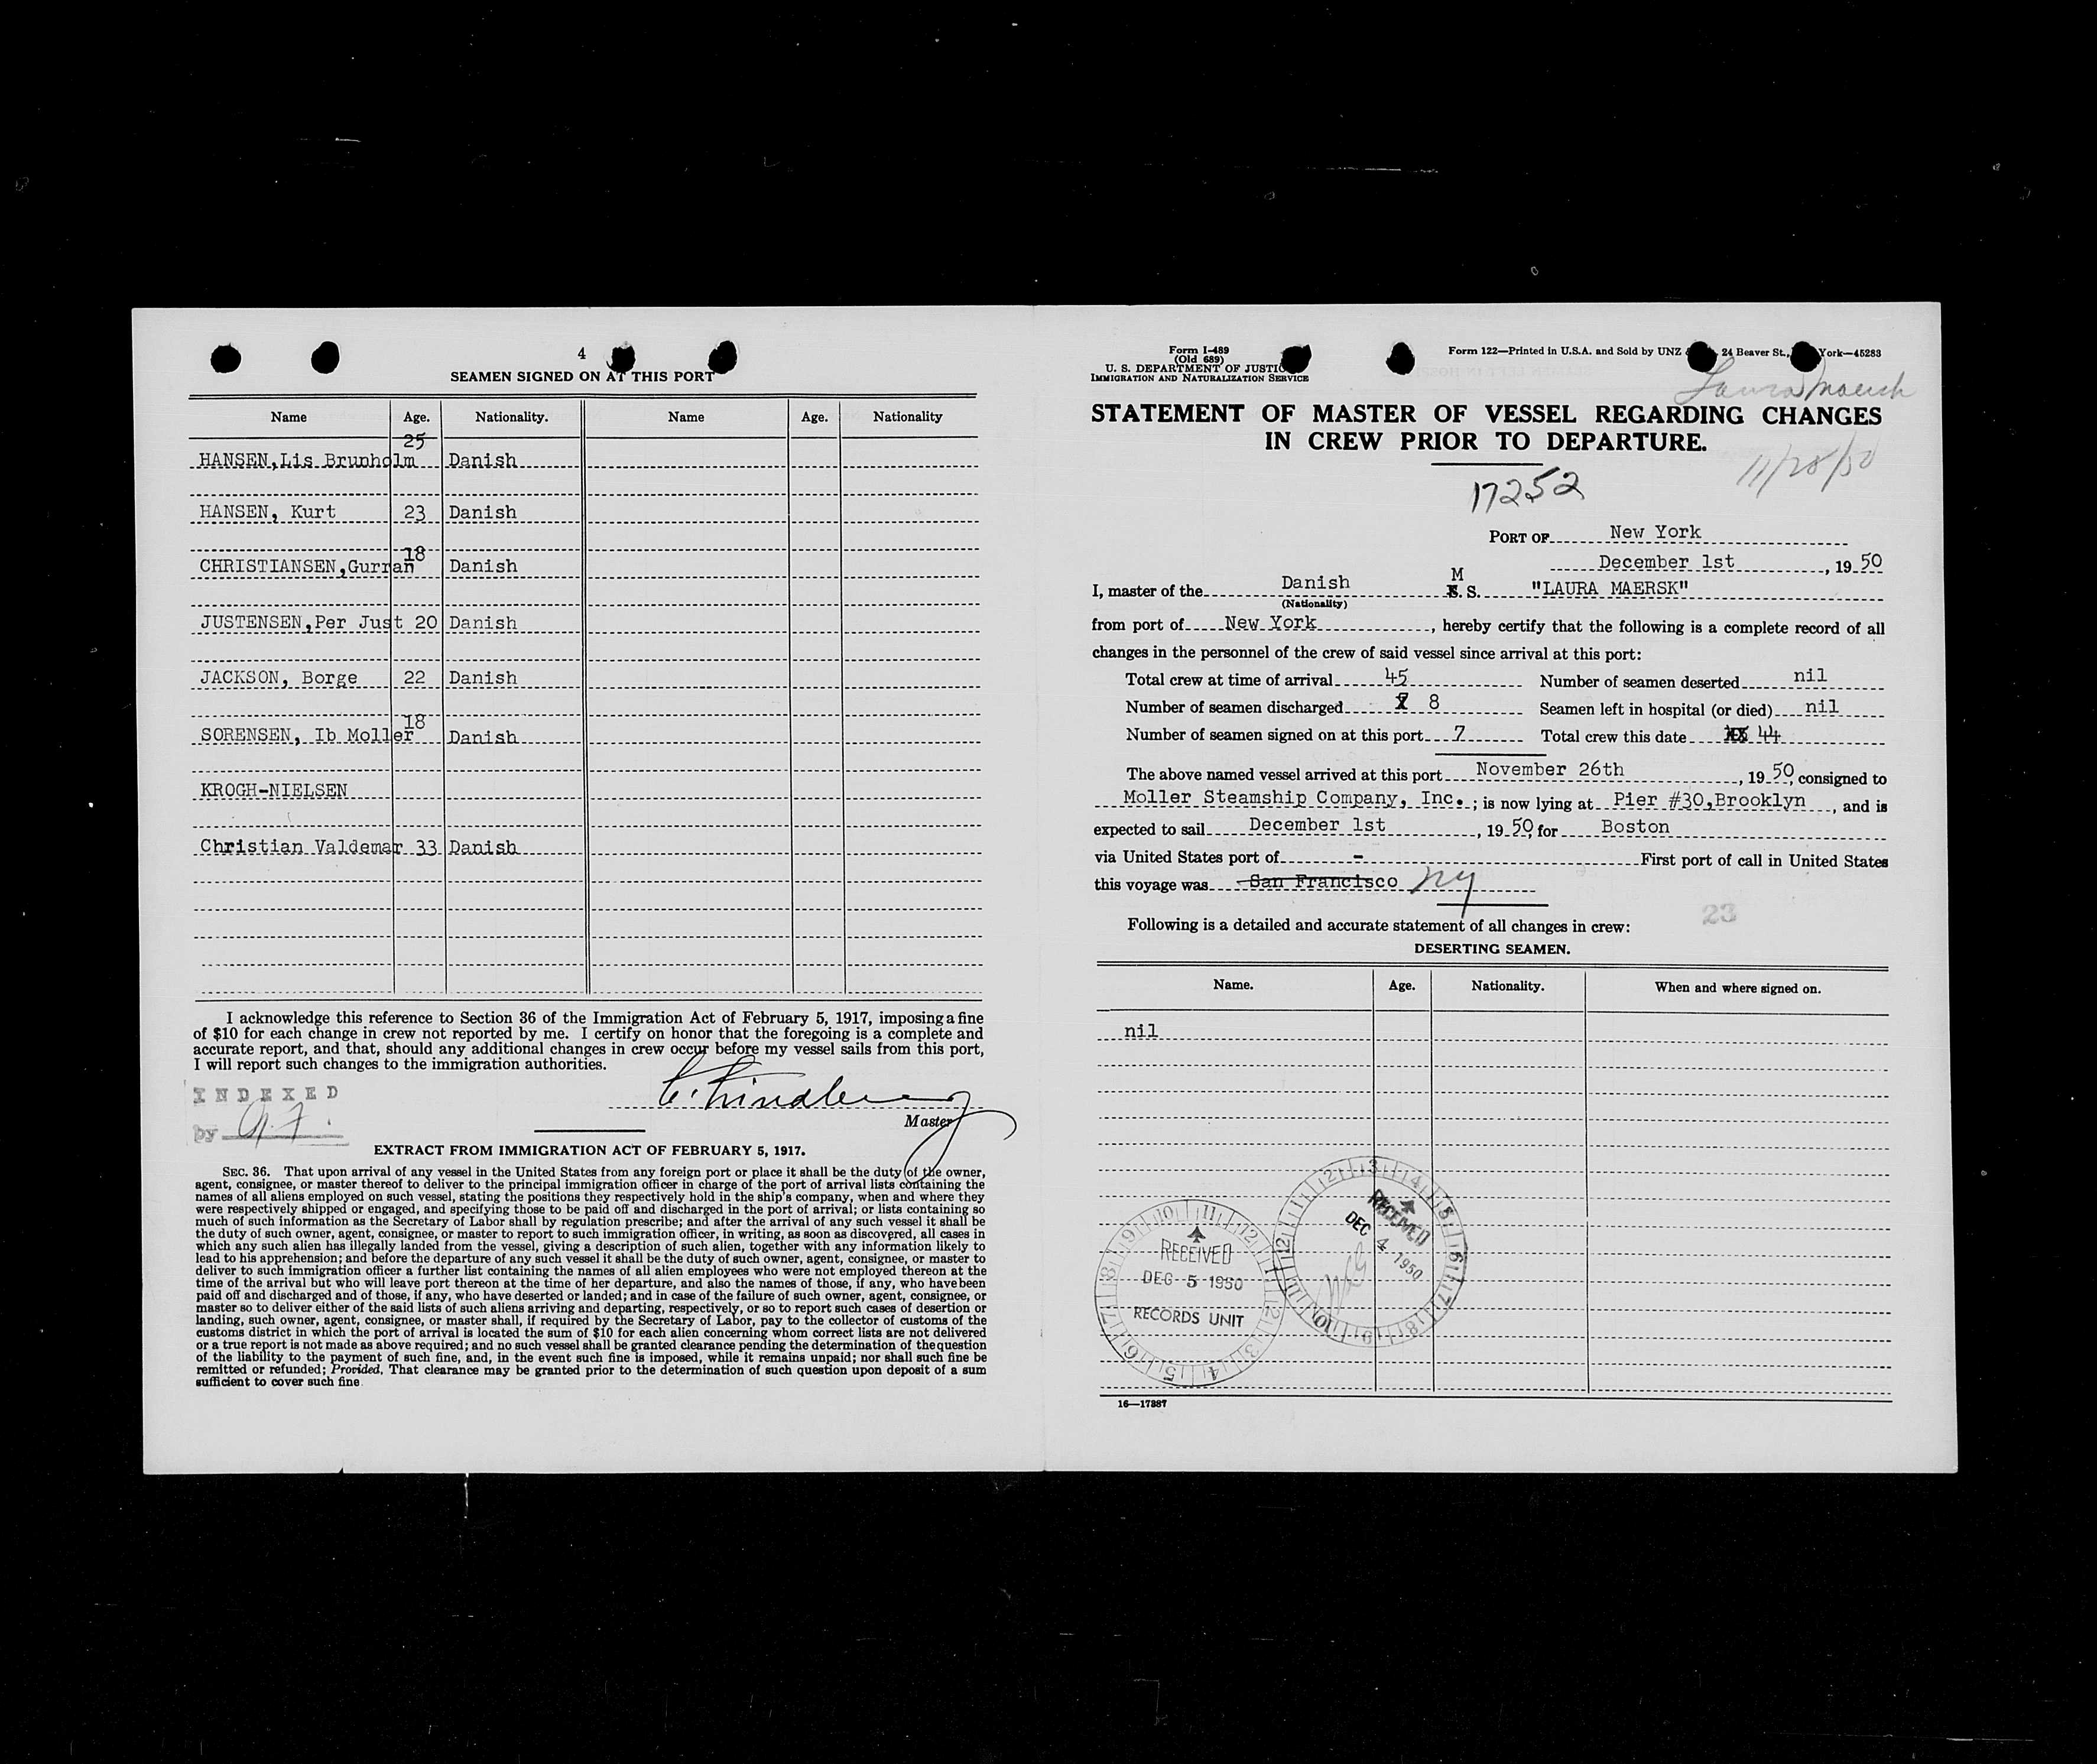 4
SEAMEN SIGNED ON AT THIS PORT
Name Age. Nationality. Name Age. Nationality
25
HANSEN,Lis Brunholm Danish
HANSEN, Kurt 23 Danish
18
CHRISTIANSEN,Gurran Danish
JUSTENSEN,Per Just 20 Danish
JACKSON, Borge 22 Danish
18
SORENSEN, Ib Moller Danish
KROGH-NIELSEN
Christian Valdemar 33 Danish
I acknowledge this reference to Section 36 of the Immigration Act of February 5, 1917, imposing a fine
of $10 for each change in crew not reported by me. I certify on honor that the foregoing is a complete and
accurate report, and that, should any additional changes in crew occur before my vessel sails from this port,
I will report such changes to the immigration authorities.
INDEXED
by
Master
EXTRACT FROM IMMIGRATION ACT OF FEBRUARY 5, 1917.
SEC. 36. That upon arrival of any vessel in the United States from any foreign port or place it shall be the duty of the owner,
agent, consignee, or master thereof to deliver to the principal immigration officer in charge of the port of arrival lists containing the
names of all aliens employed on such vessel, stating the positions they respectively hold in the ship's company, when and where they
were respectively shipped or engaged, and specifying those to be paid off and discharged in the port of arrival; or lists containing so
much of such information as the Secretary of Labor shall by regulation prescribe; and after the arrival of any such vessel it shall be
the duty of such owner, agent, consignee, or master to report to such immigration officer, in writing, as soon as discovered, all cases in
which any such alien has illegally landed from the vessel, giving a description of such alien, together with any information likely to
lead to his apprehension; and before the departure of any such vessel it shall be the duty of such owner, agent, consignee, or master to
deliver to such immigration officer a further list containing the names of all alien employees who were not employed thereon at the
time of the arrival but who will leave port thereon at the time of her departure, and also the names of those, if any, who have been
paid off and discharged and of those, if any, who have deserted or landed; and in case of the failure of such owner, agent, consignee, or
master so to deliver either of the said lists of such aliens arriving and departing, respectively, or so to report such cases of desertion or
landing, such owner, agent, consignee, or master shall, if required by the Secretary of Labor, pay to the collector of customs of the
customs district in which the port of arrival is located the sum of $10 for each alien concerning whom correct lists are not delivered
or a true report is not made as above required; and no such vessel shall be granted clearance pending the determination of the question
of the liability to the payment of such fine, and, in the event such fine is imposed, while it remains unpaid; nor shall such fine be
remitted or refunded; Provided, That clearance may be granted prior to the determination of such question upon deposit of a sum
sufficient to cover such fine.
Form I-489
(Old 689)
U. S. DEPARTMENT OF JUSTIC
IMMIGRATION AND NATURALIZATION SERVICE
Form 122—Printed in U.S.A. and Sold by UNZ 24 Beaver St., York—45283
Laura Maersk
STATEMENT OF MASTER OF VESSEL REGARDING CHANGES
IN CREW PRIOR TO DEPARTURE.
11/28/50
17252
PORT OF New York
December 1st, 19 50
I, master of the Danish M S. "LAURA MAERSK"
(Nationality)
from port of New York, hereby certify that the following is a complete record of all
changes in the personnel of the crew of said vessel since arrival at this port:
Total crew at time of arrival 45 Number of seamen deserted nil
Number of seamen discharged 7 8 Seamen left in hospital (or died) nil
Number of seamen signed on at this port 7 Total crew this date 44
The above named vessel arrived at this port November 26th, 19 50, consigned to
Moller Steamship Company, Inc. ; is now lying at Pier #30,Brooklyn, and is
expected to sail December 1st, 19 50, for Boston
via United States port of - First port of call in United States
this voyage was San Francisco NY
23
Following is a detailed and accurate statement of all changes in crew:
DESERTING SEAMEN.
Name. Age. Nationality. When and where signed on.
nil
RECEIVED
DEC 4 1950
RECEIVED
DEC 5 1950
RECORDS UNIT
16—17887